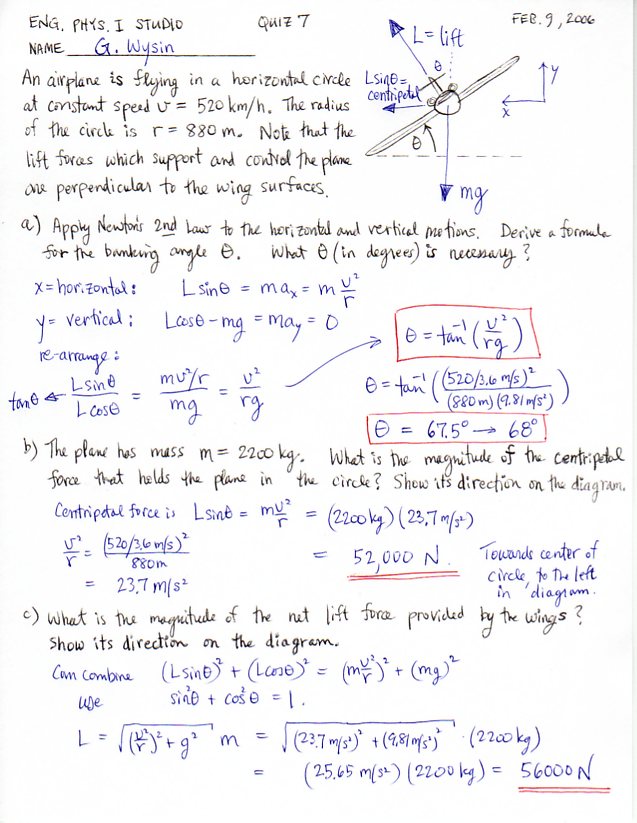 ENG. PHYS. I STUDIO QUIZ 7 FEB. 9, 2006
NAME G. Wysin
L = lift
θ
Lsinθ =
centripetal
y
x
θ
mg
An airplane is flying in a horizontal circle
at constant speed v = 520 km/h. The radius
of the circle is r = 880 m. Note that the
lift forces which support and control the plane
are perpendicular to the wing surfaces.
a) Apply Newton's 2nd Law to the horizontal and vertical motions. Derive a formula
for the banking angle θ. What θ (in degrees) is necessary?
x = horizontal: L sinθ = max = m v²/r
y = vertical: Lcosθ - mg = may = 0
re-arrange:
tanθ ← Lsinθ/Lcosθ = (mv²/r)/mg = v²/rg
θ = tan⁻¹(v²/rg)
θ = tan⁻¹((520/3.6 m/s)²/(880m)(9.81 m/s²))
θ = 67.5° → 68°
b) The plane has mass m = 2200 kg. What is the magnitude of the centripetal
force that holds the plane in the circle? Show its direction on the diagram.
Centripetal force is Lsinθ = m v²/r = (2200 kg)(23.7 m/s²)
v²/r = (520/3.6 m/s)²/880m
= 23.7 m/s²
= 52,000 N.
Towards center of
circle, to the left
in diagram.
c) What is the magnitude of the net lift force provided by the wings?
Show its direction on the diagram.
Can combine (Lsinθ)² + (Lcosθ)² = (m v²/r)² + (mg)²
use sin²θ + cos²θ = 1.
L = √((v²/r)² + g²) m = √((23.7 m/s²)² + (9.81 m/s²)²) · (2200 kg)
= (25.65 m/s²)(2200 kg) = 56000 N